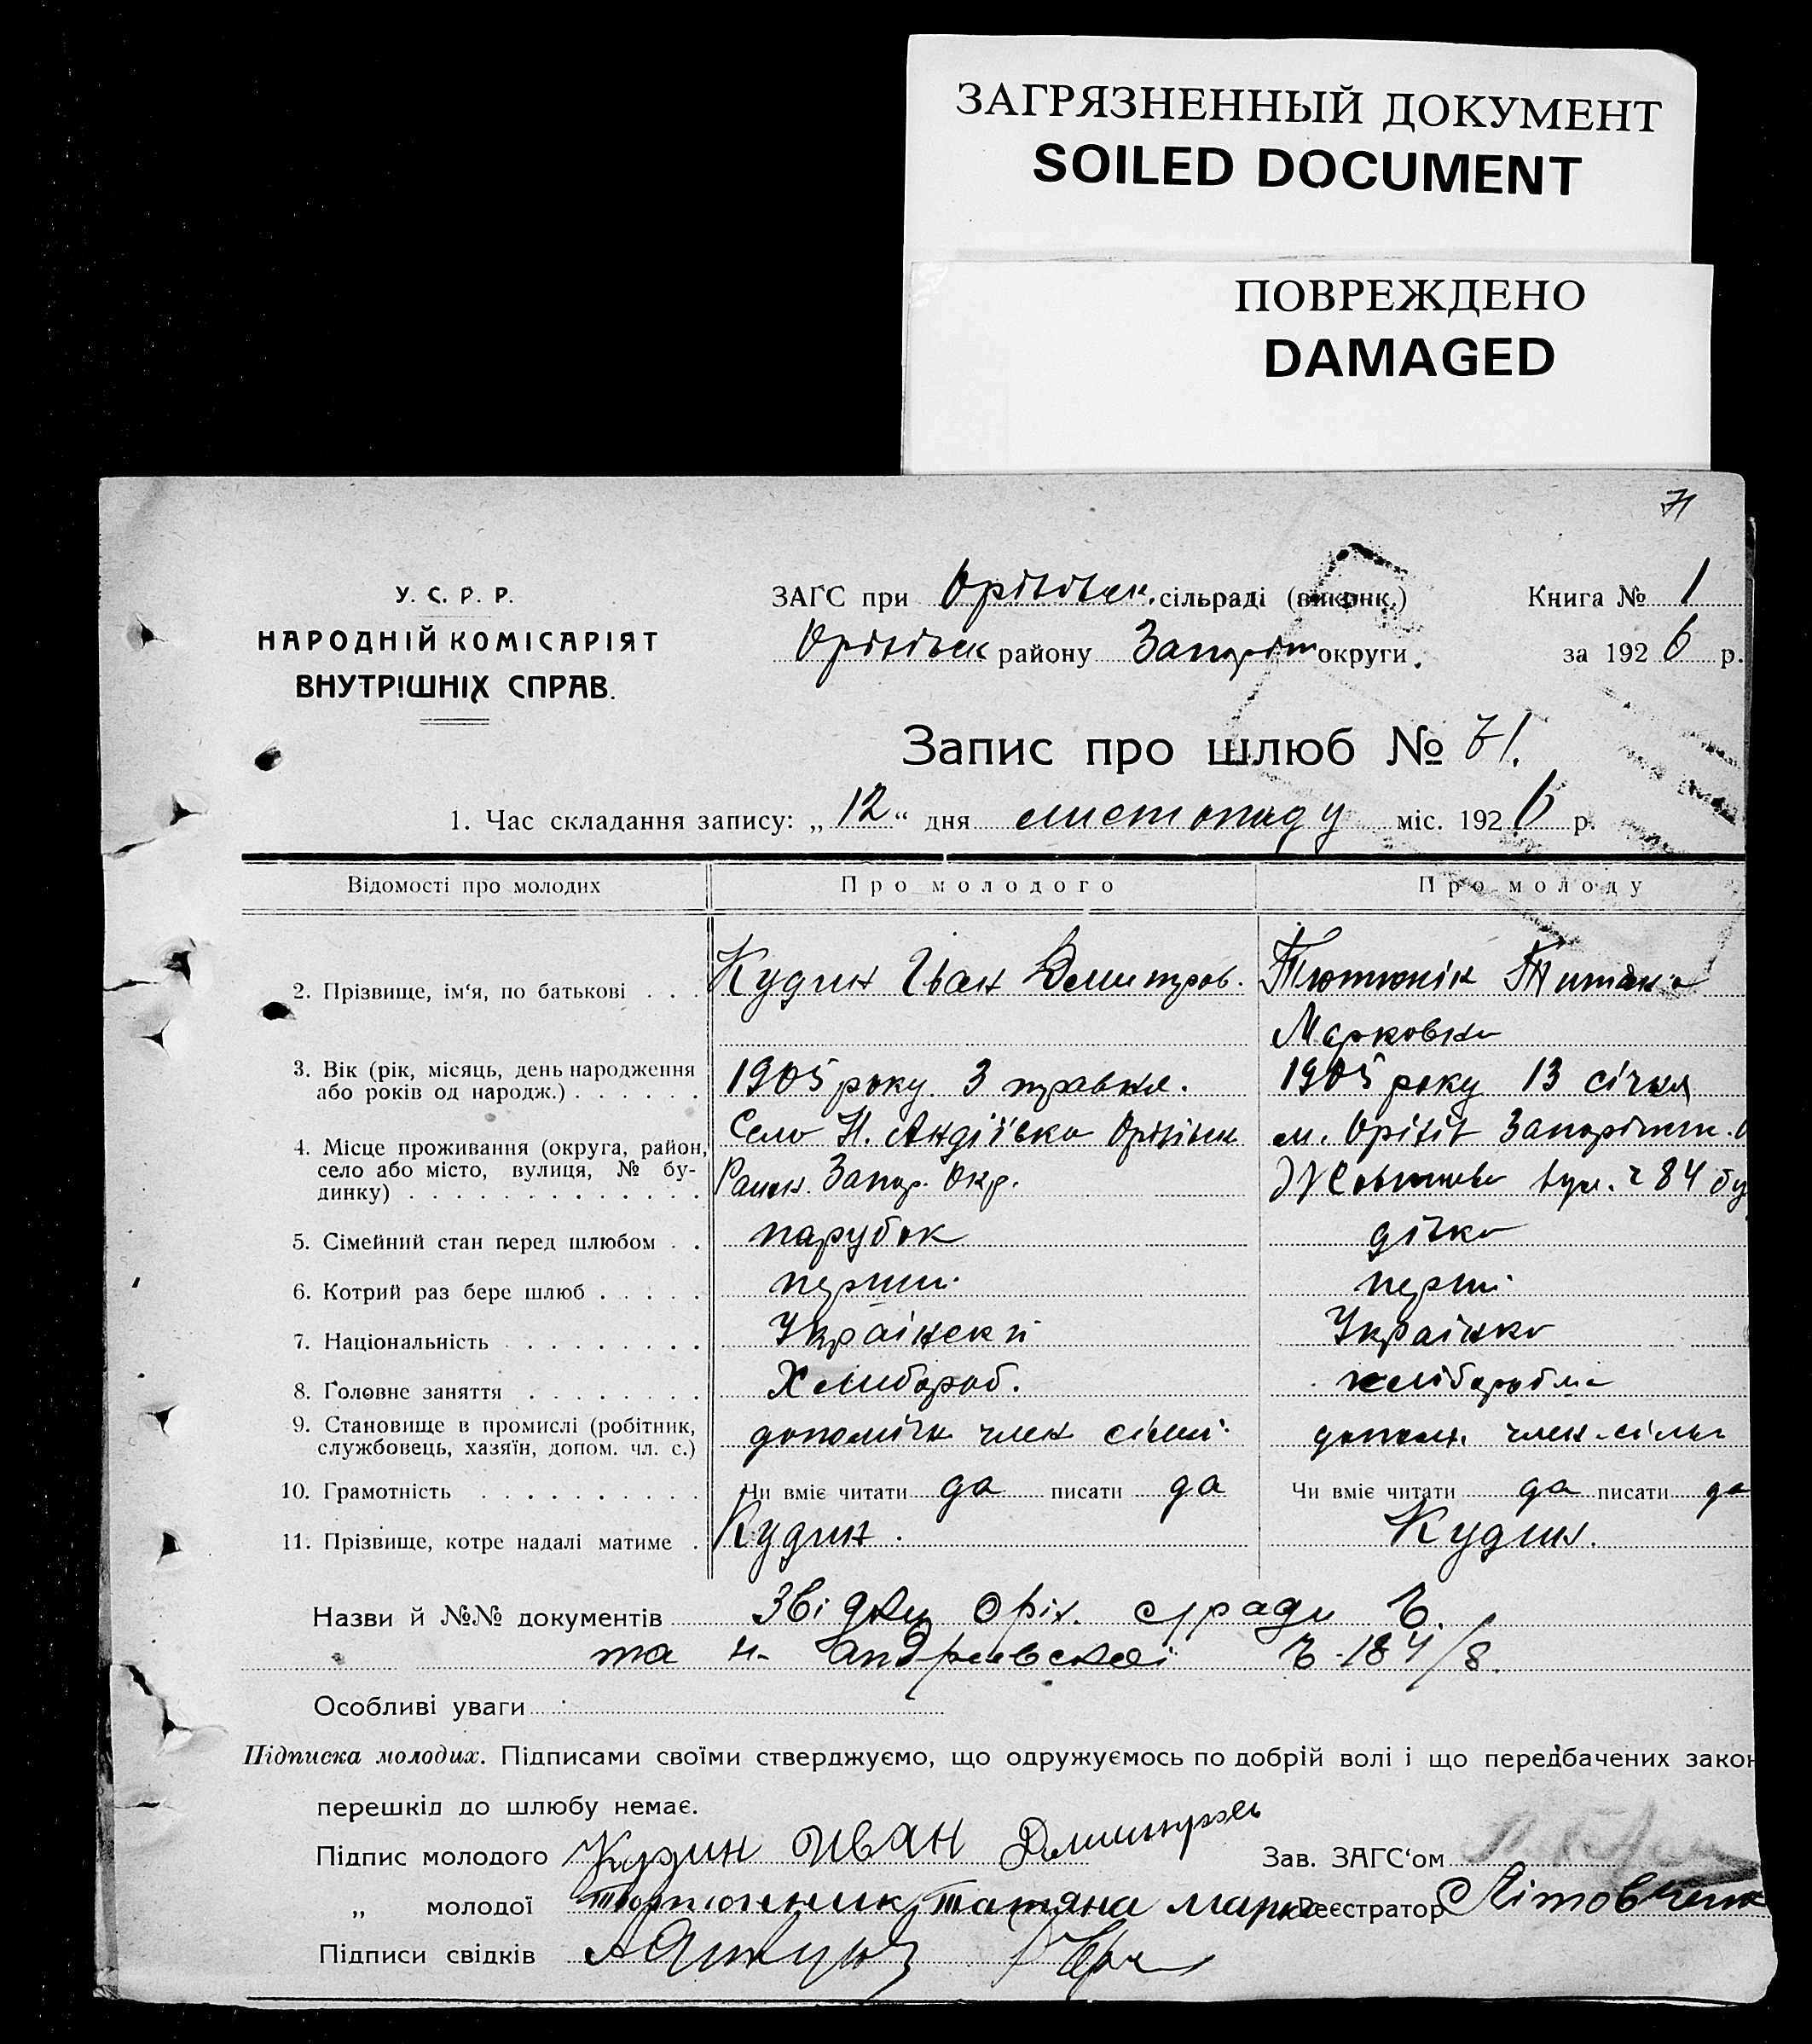 ЗАГРЯЗНЕННЫЙ ДОКУМЕНТ
SOILED DOCUMENT
ПОВРЕЖДЕНО
DAMAGED
71
У. С. Р. Р.
НАРОДНІЙ КОМІСАРІЯТ
ВНУТРІШНІХ СПРАВ.
ЗАГС при Оріхівськ. сільраді (виконк.)
Книга № 1
Оріхівськ району Запоріж округи.
за 1926 р.
Запис про шлюб № 71.
1. Час складання запису: „12“ дня листопаду міс. 1926 р.
Відомості про молодих
Про молодого
Про молоду
2. Прізвище, ім‘я, по батькові . . .
Кудин Іван Демитров.
Тютюнік Титяна
Марковна
3. Вік (рік, місяць, день народження
або років од народж.) . . . . . .
1905 року 3 травня.
1905 року 13 січня
4. Місце проживання (округа, район,
село або місто, вулиця, № бу-
динку) . . . . . . . . . . . . .
Село Н. Андіївка Оріхівськ
Раион. Запор. Окр.
м. Оріхів Запоріжж. О
Жовтнева вул. ч 84 бу
5. Сімейний стан перед шлюбом . .
парубок
дівка
6. Котрий раз бере шлюб . . . . .
перший
перші
7. Національність . . . . . . . . .
Українский
Українка
8. Головне заняття . . . . . . . .
Хлибороб.
хлібороб
9. Становище в промислі (робітник,
службовець, хазяїн, допом. чл. с.)
допоміжн член сімї
допом. член сімы
10. Грамотність . . . . . . . . . .
Чи вміє читати да писати да
Чи вміє читати да писати да
11. Прізвище, котре надалі матиме .
Кудин.
Кудин.
Назви й №№ документів Звідки Оріх. с/ради Ч.
та н- Андриевскої Ч-184/8.
Особливі уваги
Підписка молодих. Підписами своїми стверджуємо, що одружуємось по добрій волі і що передбачених закон
перешкід до шлюбу немає.
Підпис молодого Кудин Иван Дмитровь
Зав. ЗАГС‘ом
„ молодої Тютюнник Татяна Марко
Реєстратор Літовченк
Підписи свідків